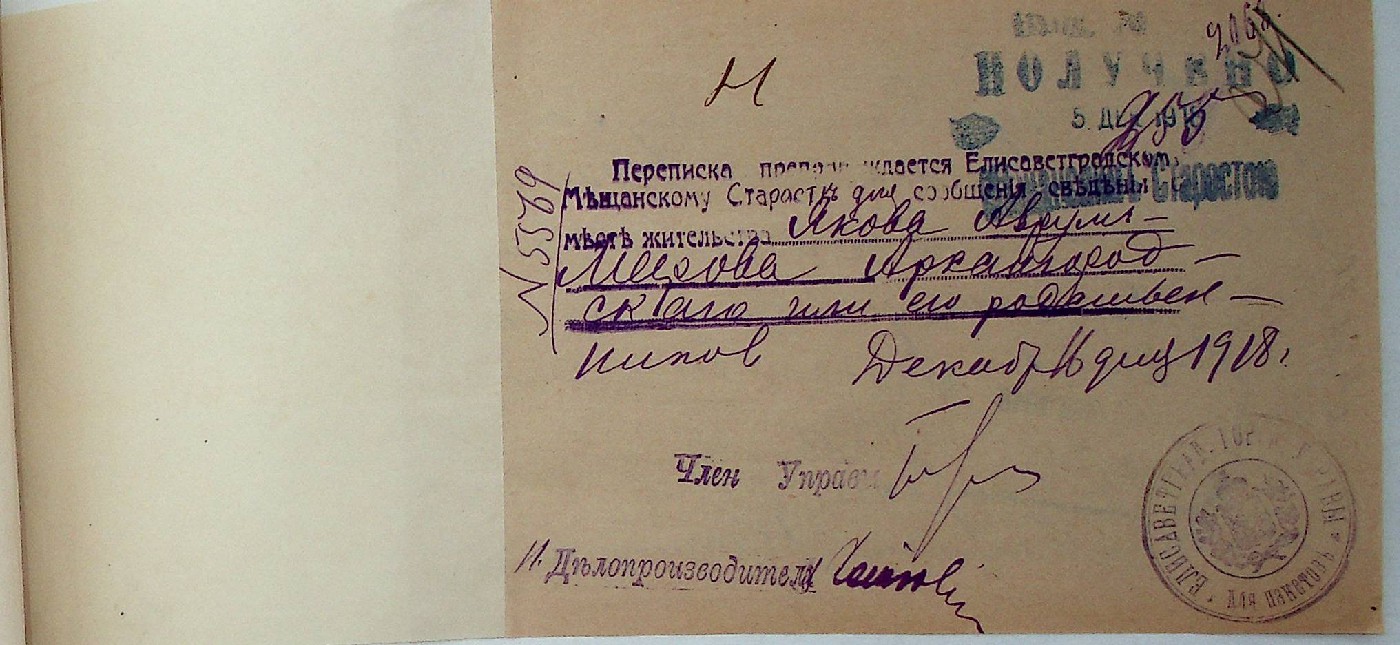 ПОЛУЧЕНО
5 ДЕК 1918
Старостою
№ 5569
Переписка препровождается Елисаветградском
Мѣщанскому Старостѣ для сообщенія свѣдѣній
мѣстѣ жительства Якова Аврумъ-
Мехова Архангород-
скаго или его родствен-
никовъ Декабр 1918.
Член Управы
И. Дѣлопроизводителя
ЕЛИСАВЕТГРАД. ГОР. УПРАВЫ
Для пакетовъ